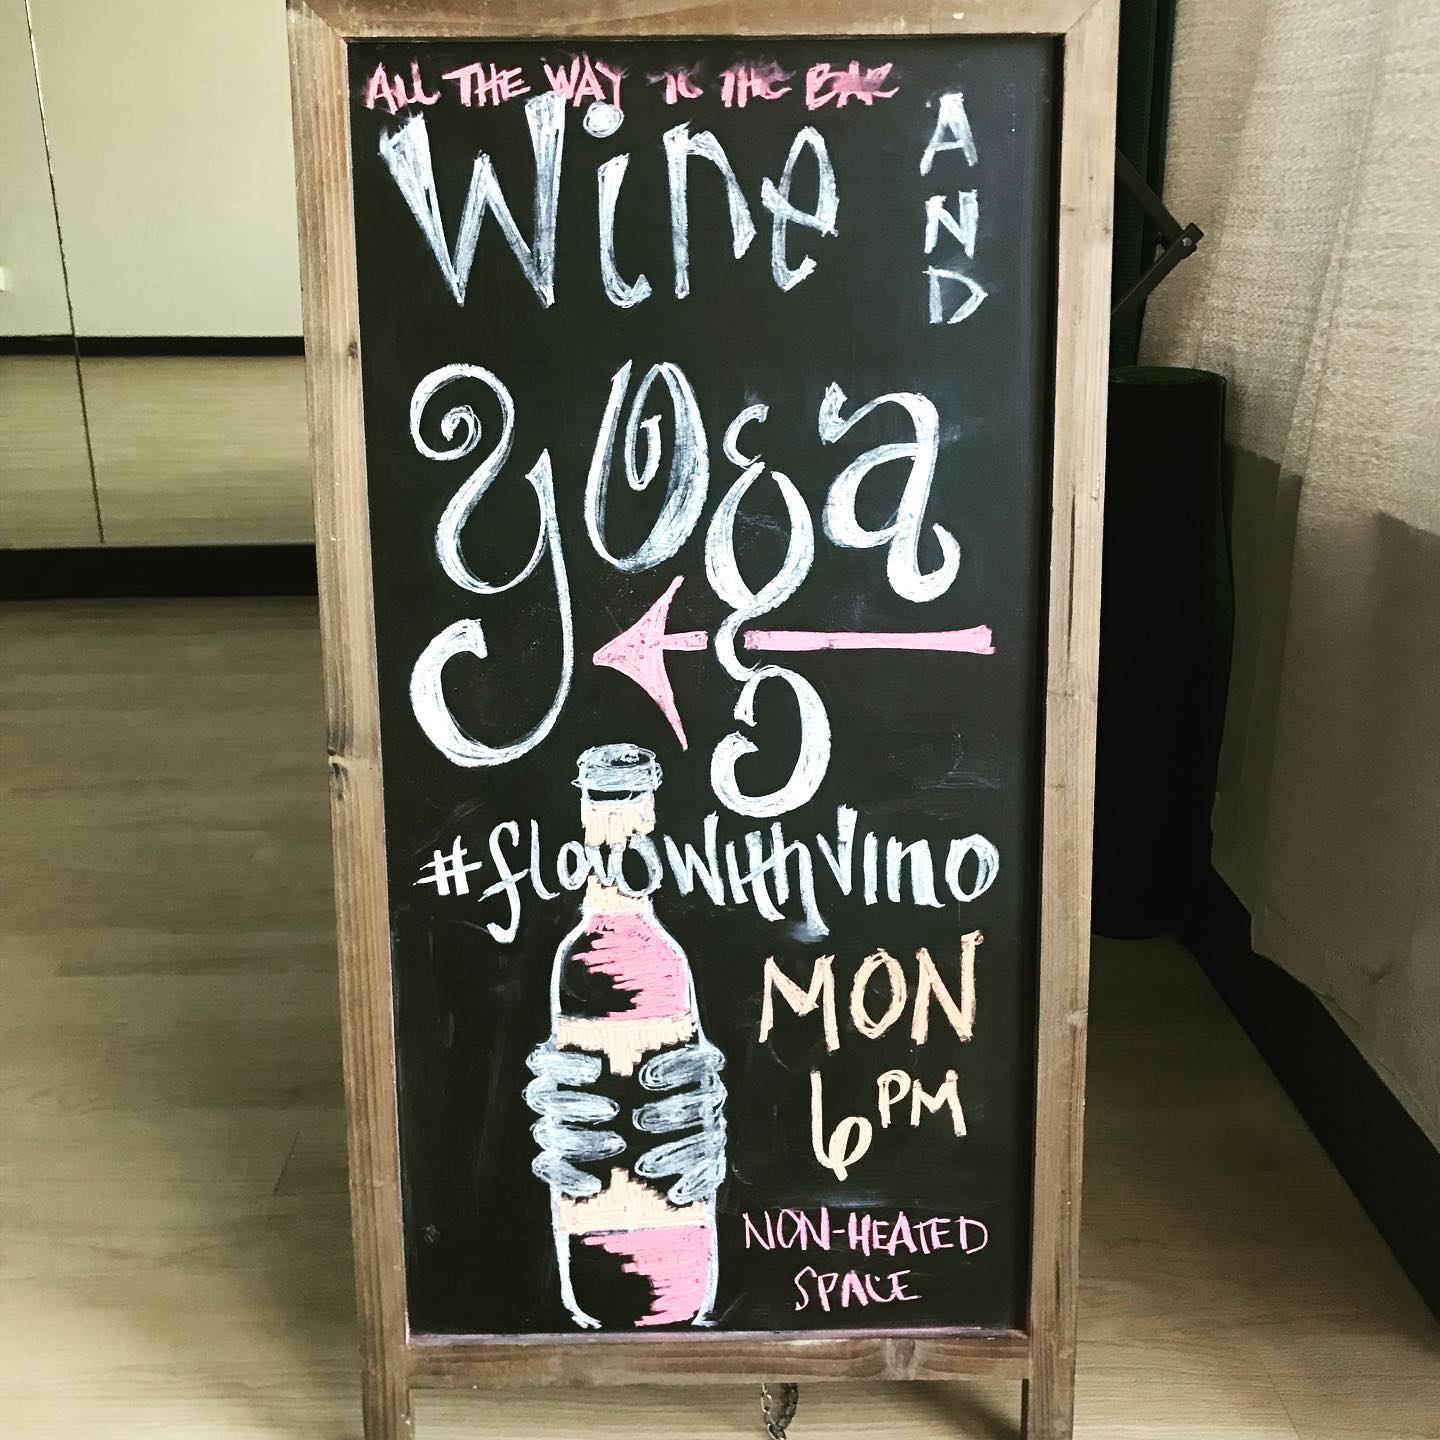 ALL THE WAY TO THE BAR
Wine AND
yoga
#flowwithvino
MON
6PM
NON-HEATED
SPACE